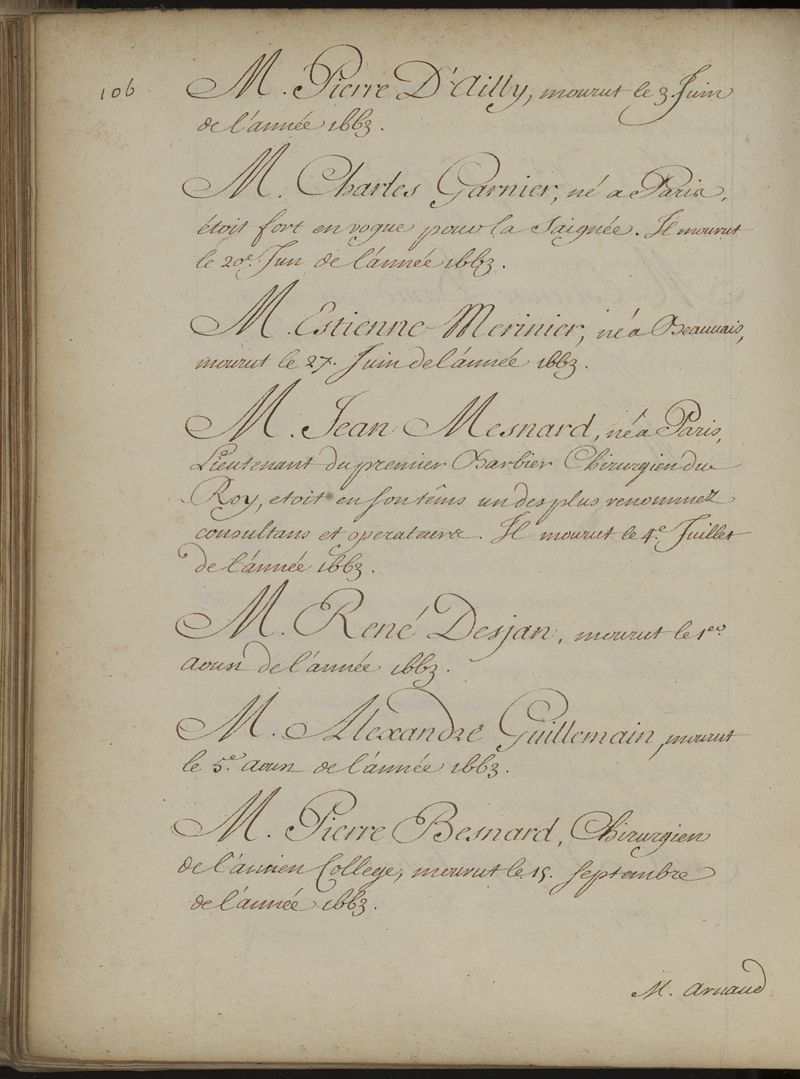 106
M. Pierre D'Ailly, mourut le 3. Juin
de l'année 1663.
M. Charles Garnier, né a Paris,
étoit fort en vogue pour la Saignée. Il mourut
le 20e. Jun de l'année 1663.
M. Estienne Merinier, né a Beauvais,
mourut le 27. Juin de l'année 1663.
M. Jean Mesnard, né a Paris,
Lieutenant du premier Barbier Chirurgien du
Roy, etoit en son têms un des plus renommez
consultans et operateurs. Il mourut le 4e. Juillet
de l'année 1663.
M. René Desjan, mourut le 1er
Aoust de l'année 1663.
M. Alexandre Guillemain, mourut
le 5e. Aoust de l'année 1663.
M. Pierre Besnard, Chirurgien
de l'ancien College, mourut le 15. Septembre
de l'année 1663.
M. Arnaud